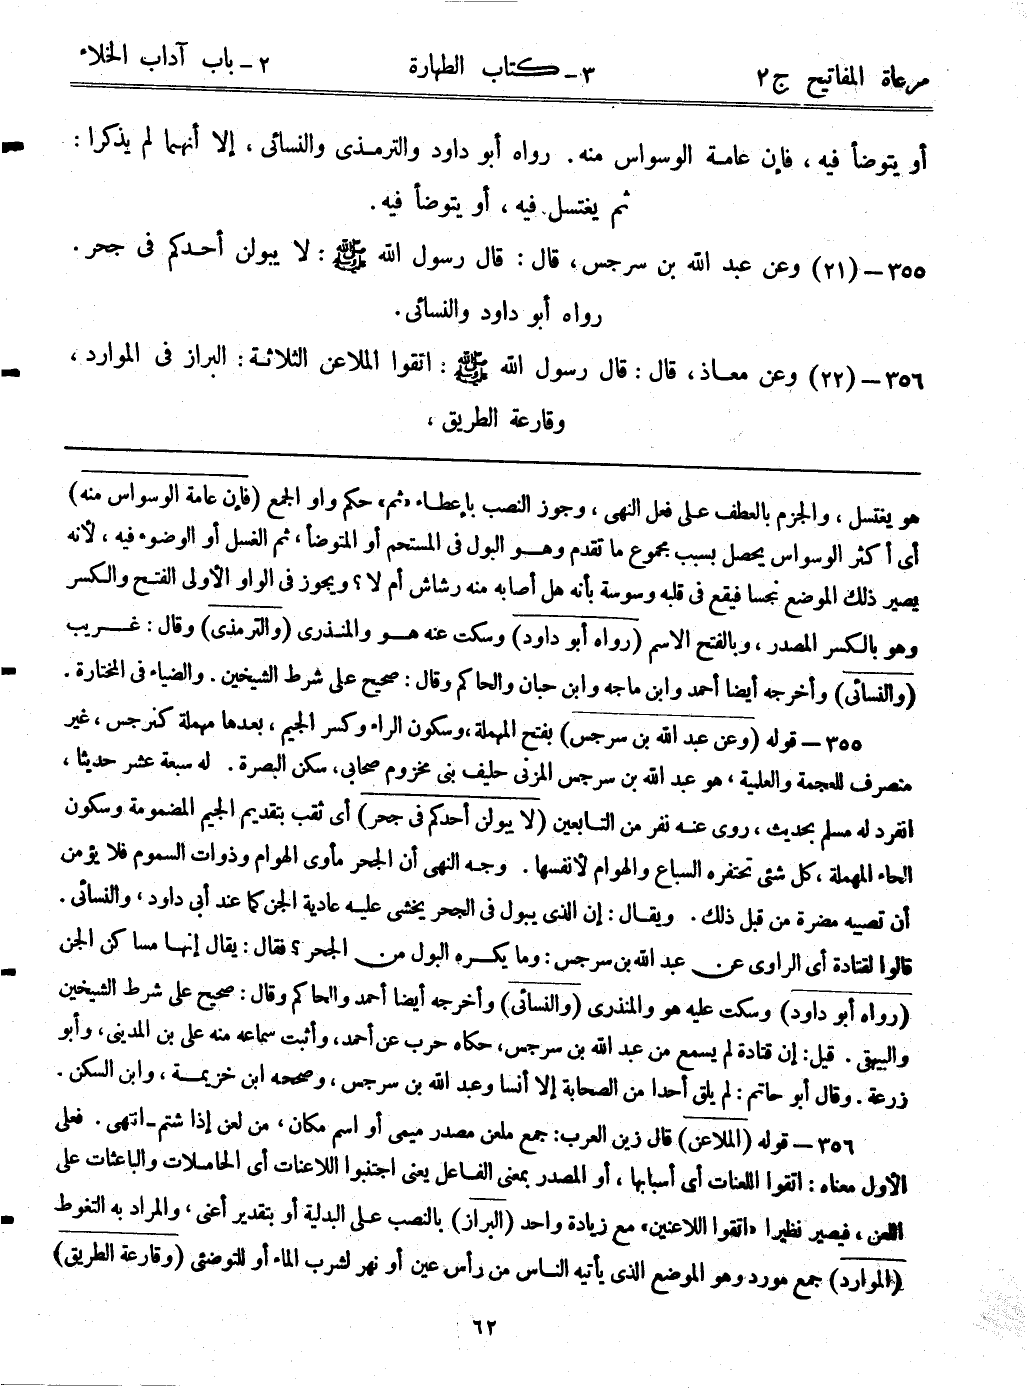 مرعاة المفاتيح ج٢ ٣ـ كتاب الطهارة ٢ـ باب آداب الخلاء
أو يتوضأ فيه ، فإن عامة الوسواس منه. رواه أبو داود والترمذى والنسائى ، إلا أنهما لم يذكرا :
ثم يغتسل فيه ، أو يتوضأ فيه.
٣٥٥ – (٢١) وعن عبد الله بن سرجس، قال : قال رسول الله ﷺ : لا يبولن أحدكم فى جحر.
رواه أبو داود والنسائى.
٣٥٦ – (٢٢) وعن معاذ، قال : قال رسول الله ﷺ : اتقوا الملاعن الثلاثة : البراز فى الموارد،
وقارعة الطريق ،
هو يغتسل ، والجزم بالعطف على فعل النهى ، وجوز النصب بإعطاء «ثم» حكم واو الجمع (فإن عامة الوسواس منه)
أى أكثر الوسواس يحصل بسبب مجموع ما تقدم وهو البول فى المستحم أو المتوضأ، ثم الغسل أو الوضوء فيه ، لأنه
يصير ذلك الموضع نجسا فيقع فى قلبه وسوسة بأنه هل أصابه منه رشاش أم لا؟ ويجوز فى الواو الأولى الفتح والكسر
وهو بالكسر المصدر ، وبالفتح الاسم (رواه أبو داود) وسكت عنه هو والمنذرى (والترمذى) وقال : غريب
(والنسائى) وأخرجه أيضا أحمد وابن ماجه وابن حبان والحاكم وقال : صحيح على شرط الشيخين. والضياء فى المختارة.
٣٥٥ – قوله (وعن عبد الله بن سرجس) بفتح المهملة،وسكون الراء وكسر الجيم ، بعدها مهملة كنرجس ، غير
منصرف للعجمة والعلمية ، هو عبد الله بن سرجس المزنى حليف بنى مخزوم صحابى، سكن البصرة. له سبعة عشر حديثا ،
انفرد له مسلم بحديث ، روى عنه نفر من التابعين (لا يبولن أحدكم فى جحر) أى ثقب بتقديم الجيم المضمومة وسكون
الحاء المهملة ،كل شئى تحتفره السباع والهوام لأنفسها. وجه النهى أن الجحر مأوى الهوام وذوات السموم فلا يؤمن
أن تصيبه مضرة من قبل ذلك. ويقال : إن الذى يبول فى الجحر يخشى عليه عادية الجن كما عند أبى داود ، والنسائى.
قالوا لقتادة أى الراوى عن عبد الله بن سرجس : وما يكره البول من الجحر؟ فقال : يقال إنها مساكن الجن
(رواه أبو داود) وسكت عليه هو والمنذرى (والنسائى) وأخرجه أيضا أحمد والحاكم وقال : صحيح على شرط الشيخين
والبيهقى. قيل: إن قتادة لم يسمع من عبد الله بن سرجس، حكاه حرب عن أحمد، وأثبت سماعه منه على بن المدينى، وأبو
زرعة. وقال أبو حاتم : لم يلق أحدا من الصحابة إلا أنسا وعبد الله بن سرجس ، وصححه ابن خزيمة ، وابن السكن.
٣٥٦ – قوله (الملاعن) قال زين العرب: جمع ملعن مصدر ميمى أو اسم مكان، من لعن إذا شتم-انتهى. فعلى
الأول معناه : اتقوا اللعنات أى أسبابها ، أو المصدر بمعنى الفاعل يعنى اجتنبوا اللاعنات أى الحاملات والباعثات على
اللعن ، فيصير نظيرا «اتقوا اللاعنين» مع زيادة واحد (البراز) بالنصب على البدلية أو بتقدير أعنى ، والمراد به التغوط
(الموارد) جمع مورد وهو الموضع الذى يأتيه الناس من رأس عين أو نهر لشرب الماء أو للتوضئى (وقارعة الطريق)
٦٢